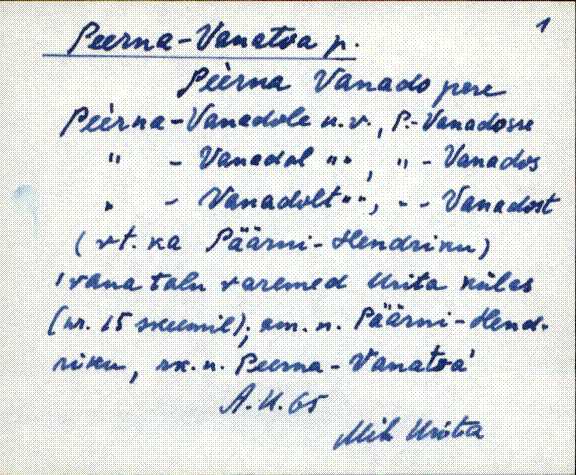 1
Peerna-Vanatoa p.
Pèèrna Vanado pere
Pèèrna-Vanadole n.v., P.-Vanadosse
" - Vanadol " ", " - Vanados
" - Vanadolt " ", - - Vanadost
(vt. ka Päärni-Hendriku)
vana talu varemed Urita külas
(nr. 15 skeemil); om. n. Päärni-Hend-
riku, rk. n. Peerna-Vanatoa
A.U. 65